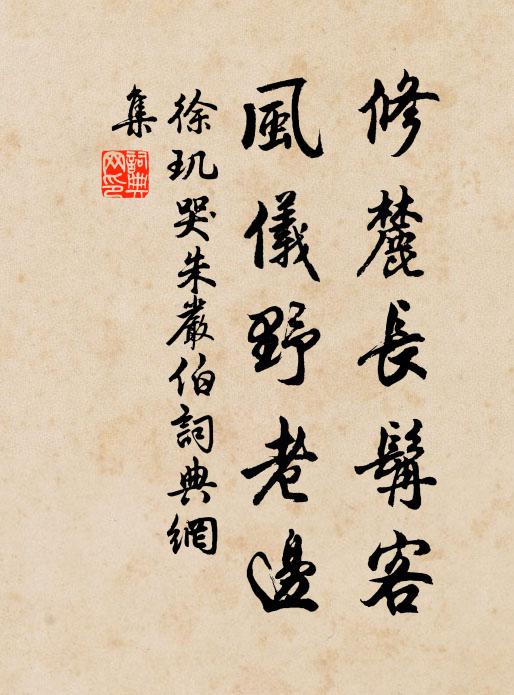 修麓長髯客
風儀野老邊
徐玑哭朱嚴伯詞典網
集
詞典網印